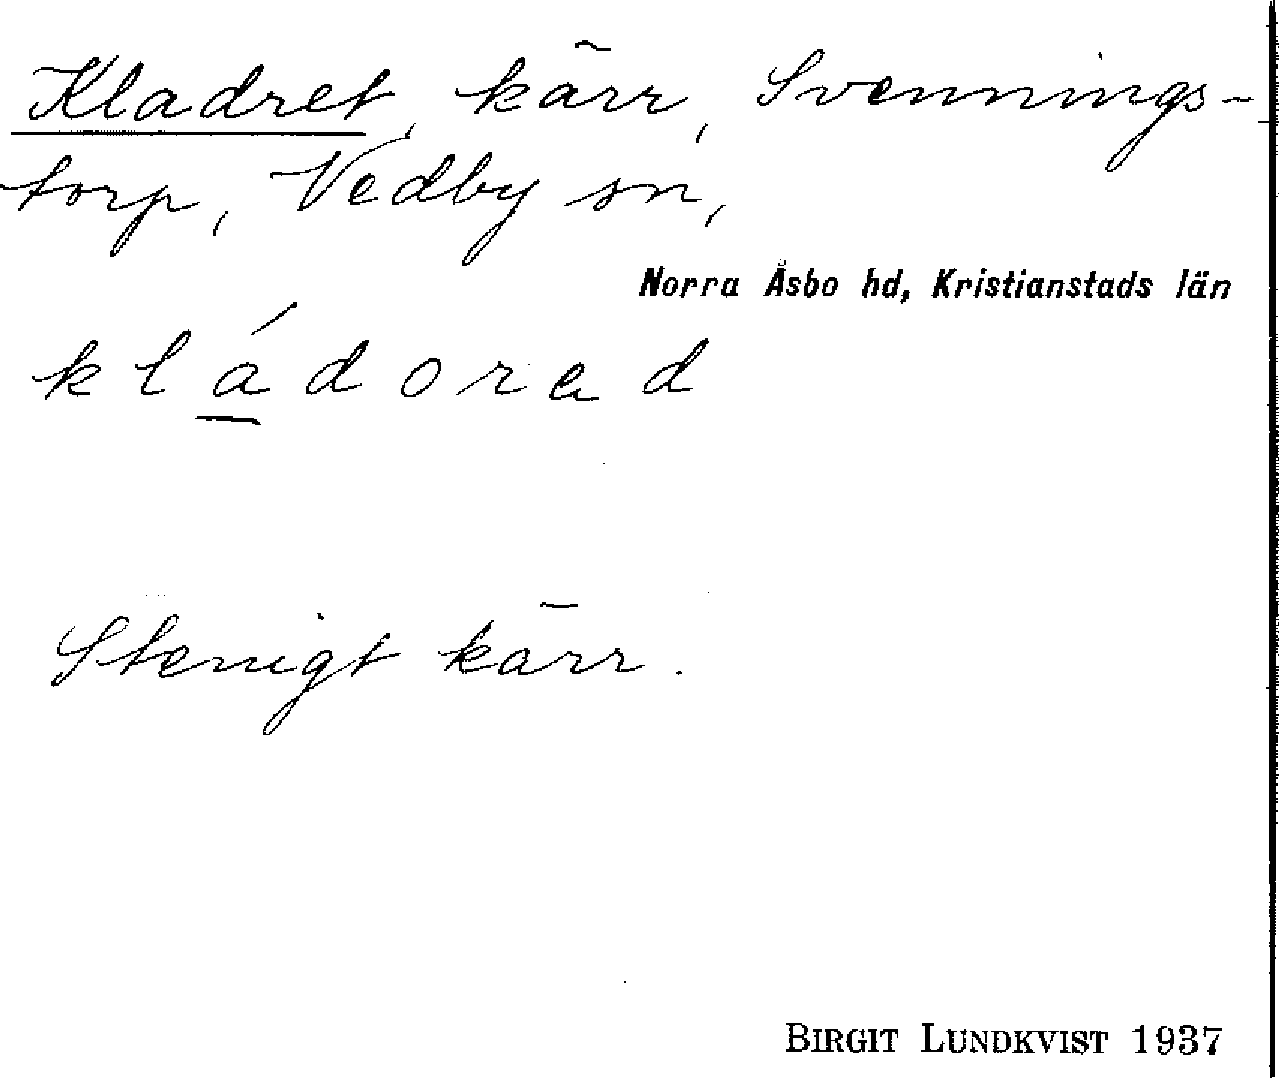 Kladret, kärr, Svennings-
torp, Vedby sn,
Norra Åsbo hd, Kristianstads län
kládorad
Stenigt kärr.
BIRGIT LUNDKVIST 1937